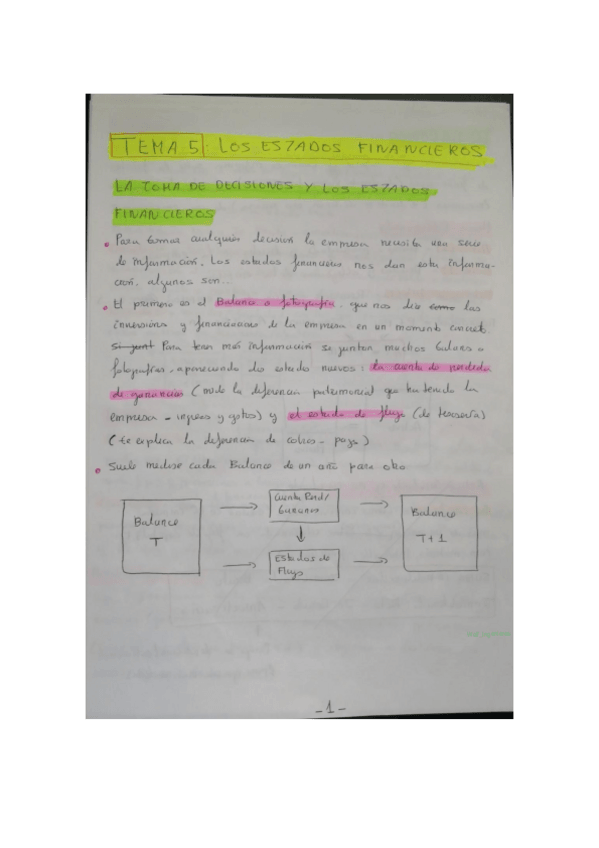 TEMA 5: LOS ESTADOS FINANCIEROS
LA TOMA DE DECISIONES Y LOS ESTADOS
FINANCIEROS
Para tomar cualquier decision la empresa necesita una serie
de información. Los estados financieros nos dan esta informa-
ción. algunos son...
El primero es el Balance o fotografía, que nos dice como las
inversiones y financiaciones de la empresa en un momento concreto.
Para tener más información se juntan muchos balances o
fotografías, apareciendo dos estados nuevos: la cuenta de perdidas
de ganancias (mide la diferencia patrimonial que ha tenido la
empresa - ingresos y gastos) y el estado de flujo (de tesorería)
(te explica la diferencia de cobros - pagos)
Suele medirse cada Balance de un año para otro
Balance
T
Cuenta Perd/
Ganancias
Estados de
Flujo
Balance
T+1
-1-